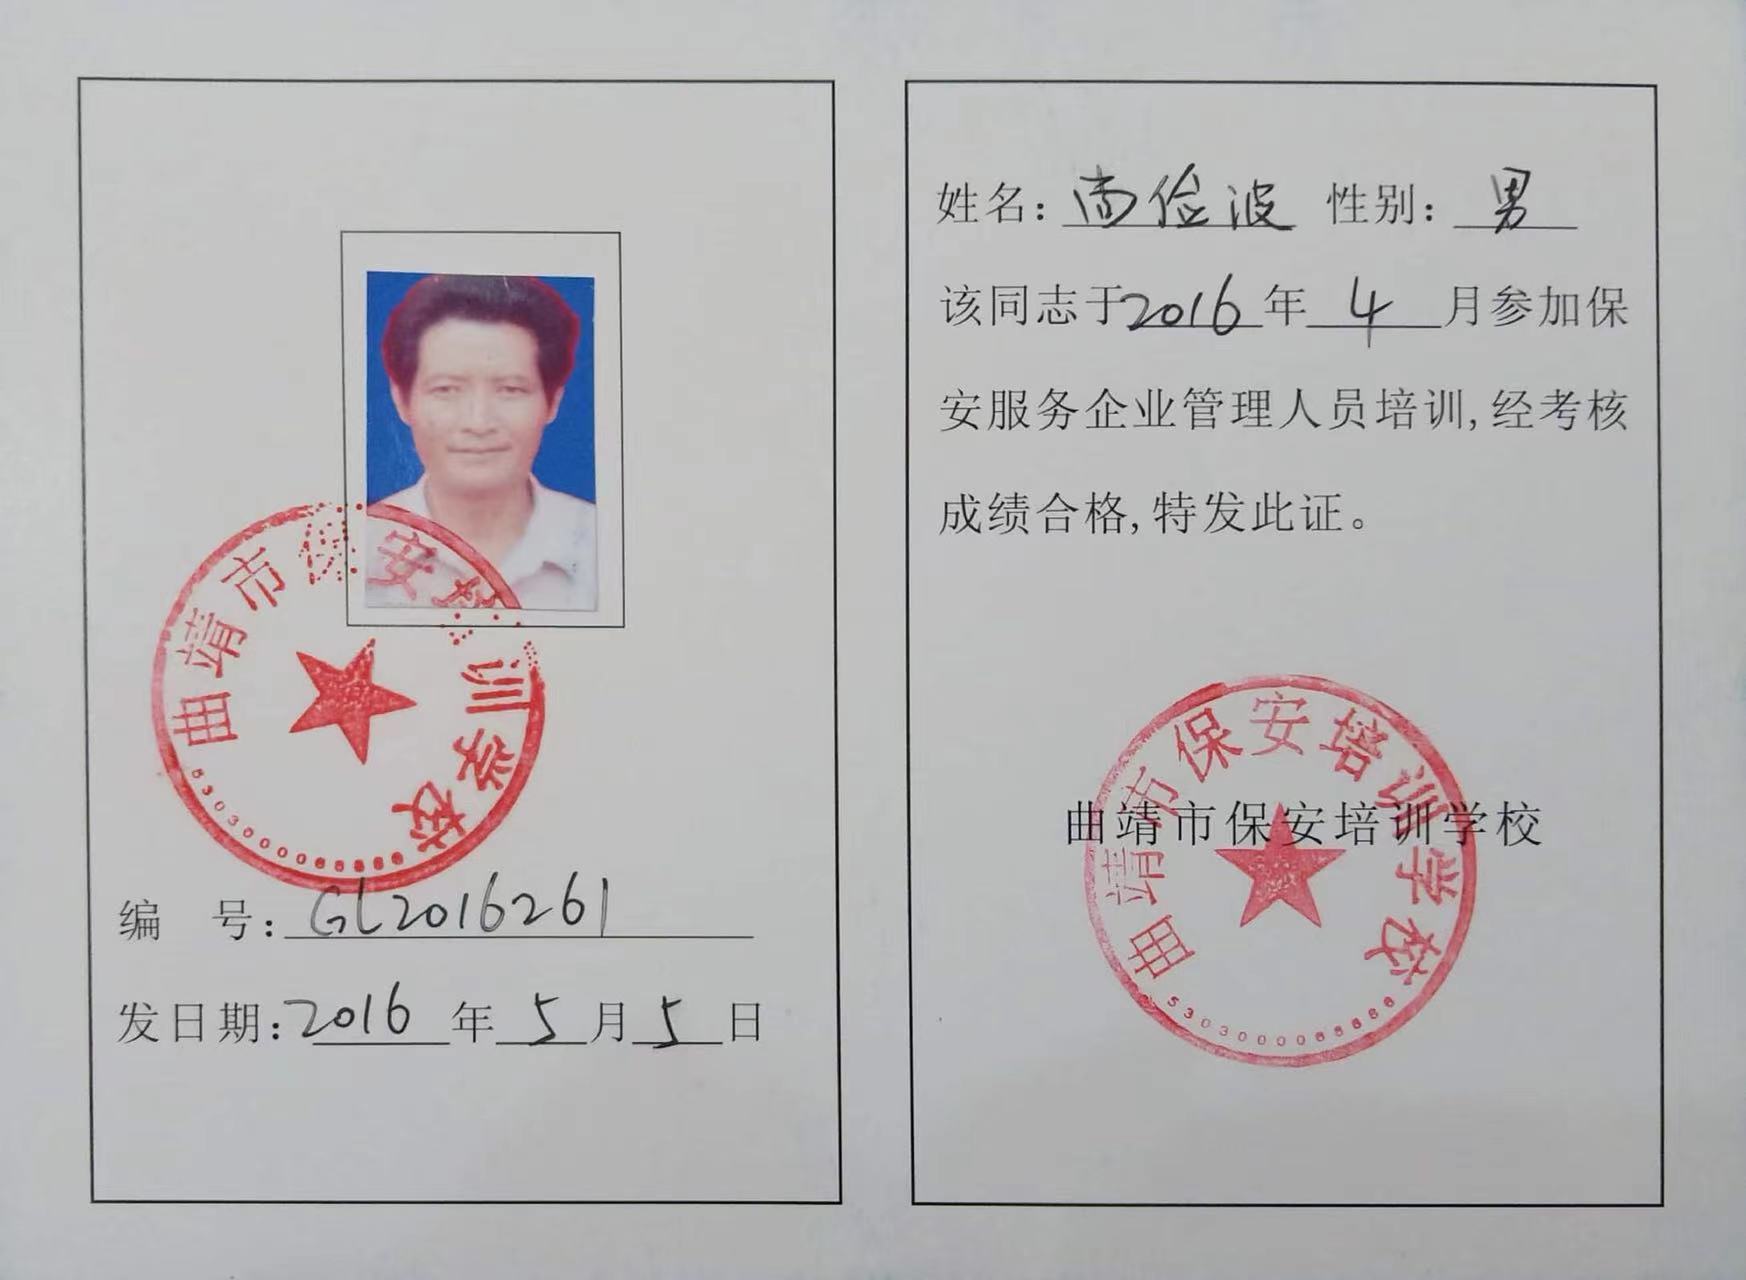 曲靖市保安培训学校
5303000068686
编 号：GL2016261
发日期：2016年5月5日
姓名：尚俭波 性别：男
该同志于2016年4月参加保
安服务企业管理人员培训,经考核
成绩合格,特发此证。
曲靖市保安培训学校
曲靖市保安培训学校
5303000068686